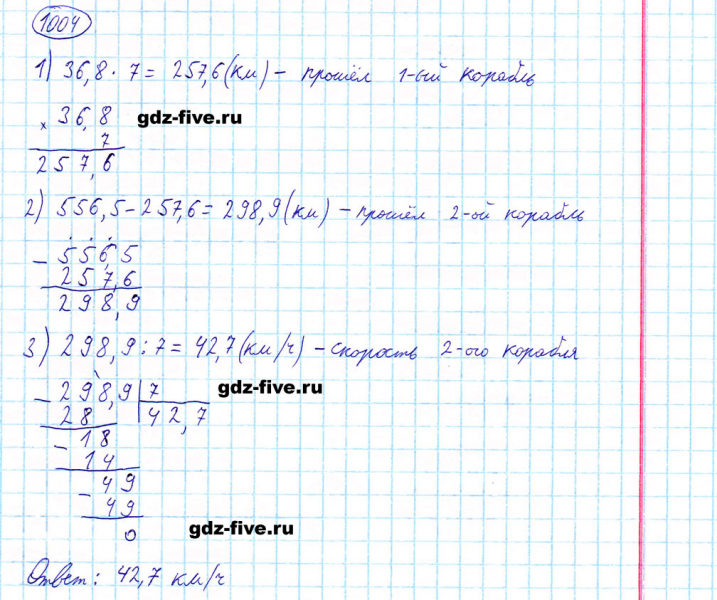 1004
1) 36,8 · 7 = 257,6 (км) – прошёл 1-ый корабль
× 36,8 gdz-five.ru
7
257,6
2) 556,5 – 257,6 = 298,9 (км) – прошёл 2-ой корабль
– 556,5
257,6
298,9
3) 298,9 : 7 = 42,7 (км/ч) – скорость 2-ого корабля
– 298,9 | 7 gdz-five.ru
28 | 42,7
– 18
14
– 49
49
0 gdz-five.ru
Ответ: 42,7 км/ч